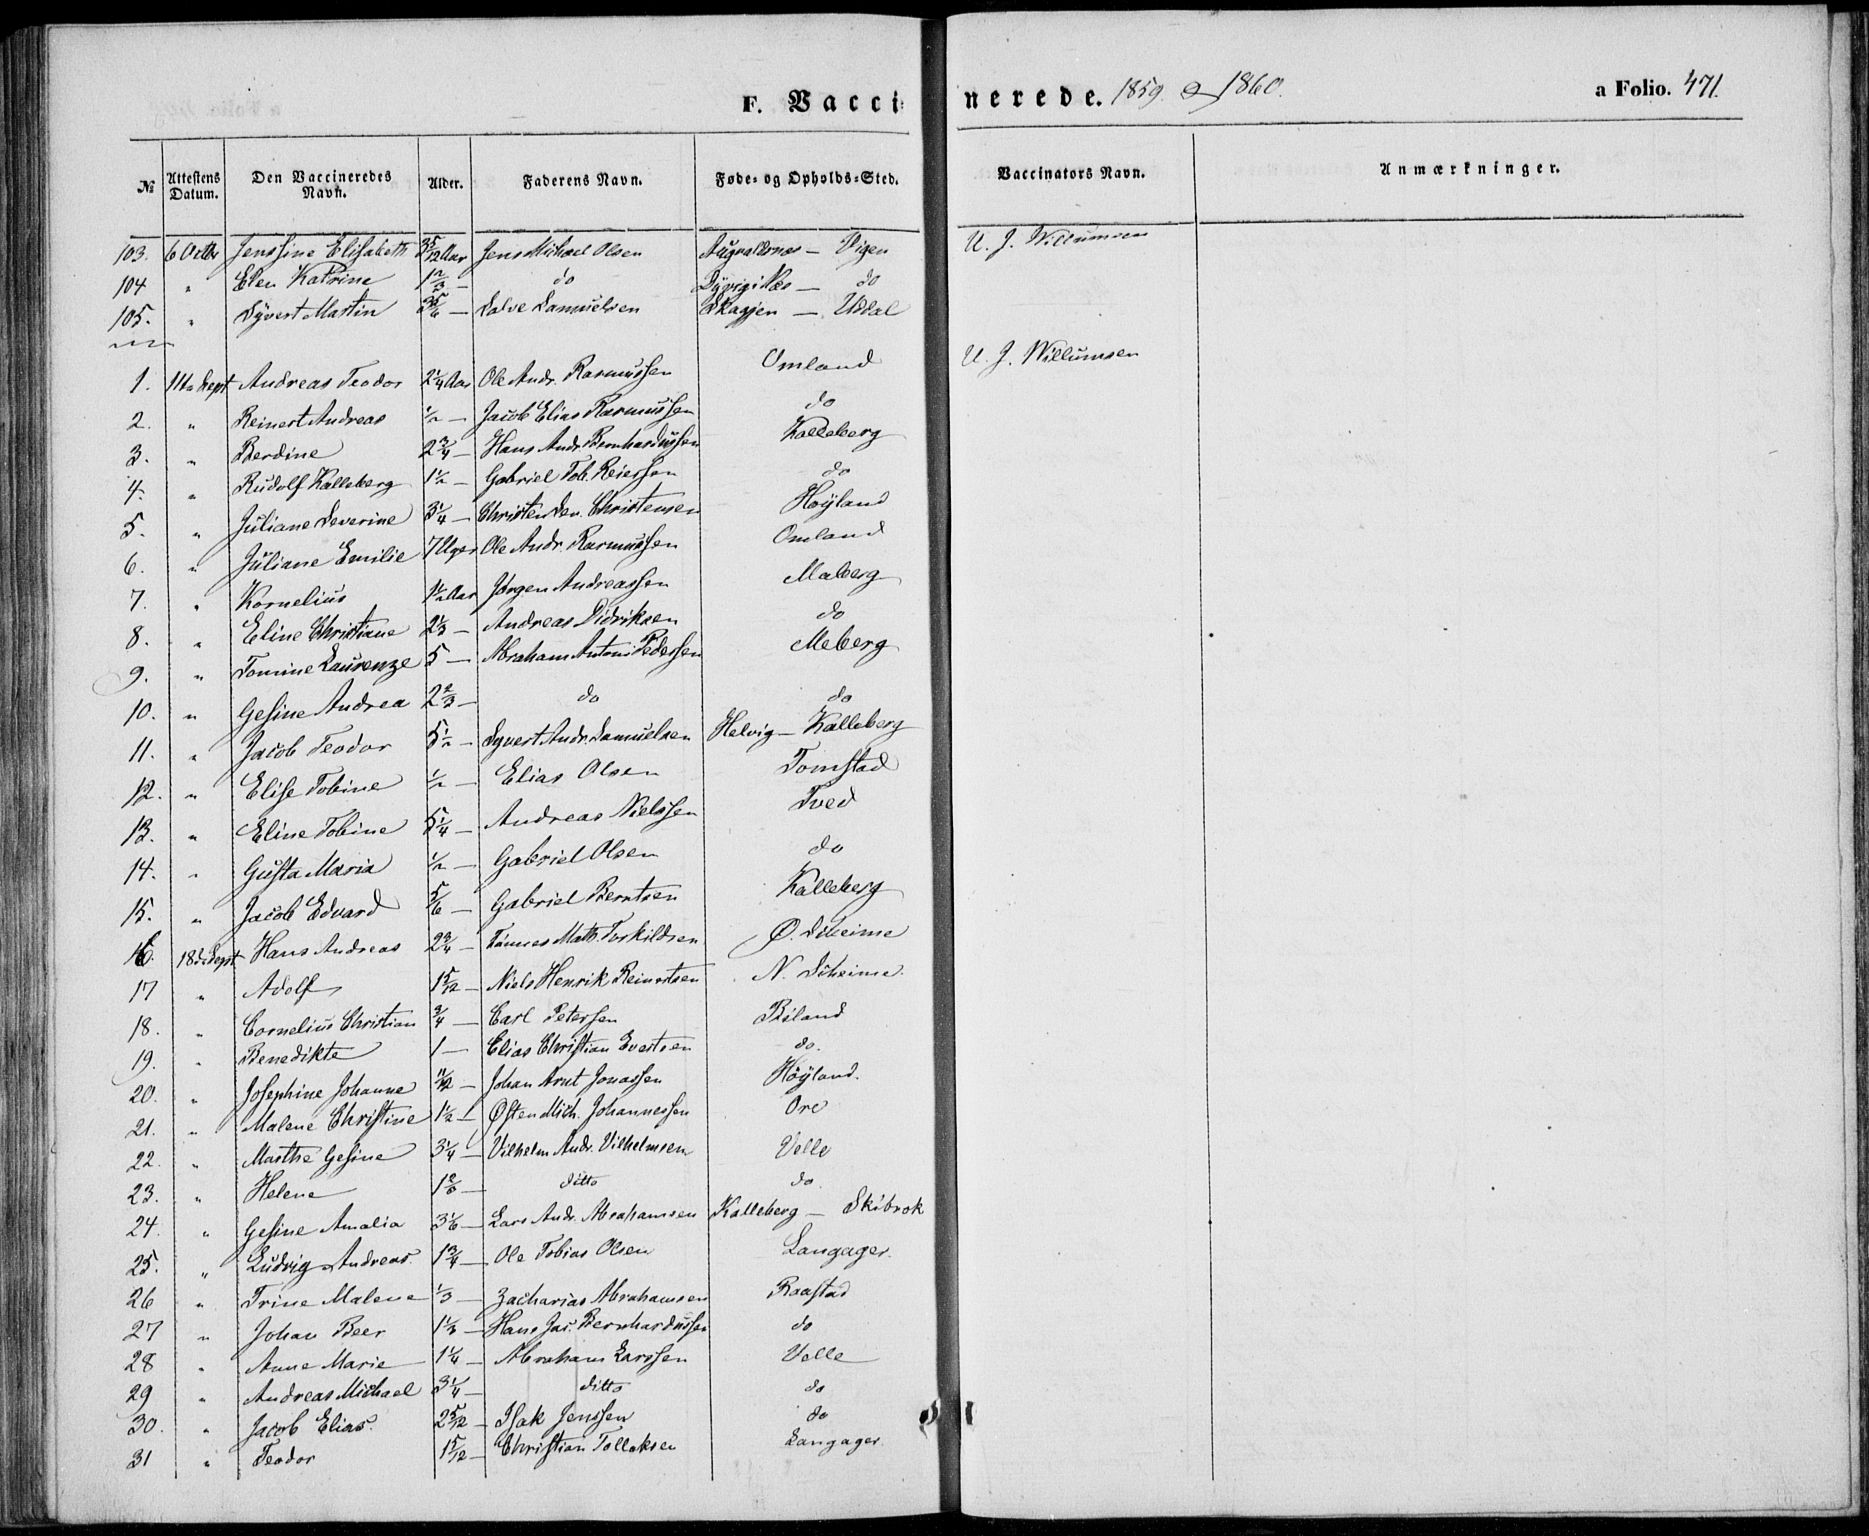 F. Vaccinerede. 1859 & 1860. a Folio. 471.
№ Attestens Datum. Den Vaccineredes Navn. Alder. Faderens Navn. Føde- og Opholds-Sted. Vaccinators Navn. Anmærkninger.
103. 6 Octbr Jenssine Elisabeth 3 5/12 Aar Jens Michael Olsen Augnalternes — Vigen U. J. Willumsen
104 " Elen Katrine 1 2/3 — do — do
105. " Syvert Martin 3 5/6 — Salve Samuelsen Skagjen — Usdal
1. 11te Sept Andreas Teodor 2 1/4 Aar Ole Andr. Rasmussen Omland U. J. Willumsen
2. " Reinert Andreas 1/2 — Jacob Elias Rasmussen do
3. " Berdine 2 3/4 — Hans Andr. Bernhardussen Kalleberg
4. " Rudolf Kalleberg 1 1/2 — Gabriel Tob. Reiersen do
5. " Juliane Severine 3 1/4 — Christen Sev. Christensen Høyland
6. " Juliane Emilie 7 Uger Ole Andr. Rasmussen Omland
7. " Kornelius 1 1/2 Aar Jørgen Andreassen Maberg
8. " Eline Christiane 2 1/3 — Andreas Didriksen do
9. " Tomine Laurenze 5 — Abraham Antoni Pedersen Meberg
10. " Gesine Andrea 2 2/3 — do do
11. " Jacob Teodor 5 1/2 — Syvert Andr. Samuelsen Helvig — Kalleberg
12. " Elise Tobine 1/2 — Elias Olsen Tomstad
13. " Eline Tobine 5 1/4 — Andreas Nielssen Tved
14. " Gusta Maria 1/2 — Gabriel Olsen do
15. " Jacob Edvard 5/6 — Gabriel Berntsen Kalleberg
16. 18de Sept Hans Andreas 2 3/4 — Tønnes Math. Torkildsen Ø. Diheime
17 " Adolf 1 5/12 — Niels Henrik Reinertsen N. Diheime.
18. " Cornelius Christian 3/4 — Carl Petersen Biland
19. " Benedikte 1 — Elias Christian Evertsen do.
20. " Josephine Johanne 11/12 — Johan Arnt Jonassen Høyland.
21. " Malene Christine 1 1/2 — Østen Mich. Johannessen Ore
22. " Marthe Gesine 3 1/4 — Vilhelm Andr. Vilhelmsen Velle
23. " Helene — ditto do.
24. " Gesine Amalia 3 1/6 — Lars Andr. Abrahamsen Kalleberg — Skibrok
25. " Ludvig Andreas 1 3/4 — Ole Tobias Olsen Langager.
26 " Trine Malene 1/3 — Zacharias Abrahamsen Raastad
27 " Johan Beer 1 1/3 — Hans Jac. Bernhardussen do
28 " Anne Marie 1 1/4 — Abraham Larssen Velle
29 " Andreas Michael 3 1/4 — ditto do
30. " Jacob Elias. 2 5/12 — Isak Jenssen do
31 " Teodor 1 5/12 — Christian Tollaksen Langager.